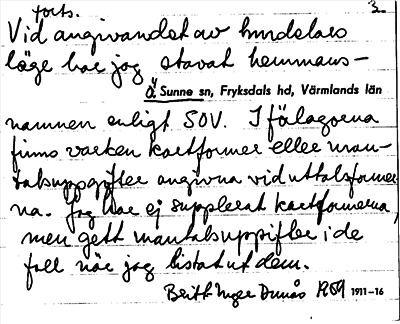 forts. 3.
Vid angivandet av hundelaes
läge har jag stavat hemmans-
Ö. Sunne sn, Fryksdals hd, Värmlands län
namnen enligt SOV. I fölagorna
finns varken kartformer eller man-
talsuppgifter angivna vid uttalsformer-
na. Jag har ej supplerat kartformerna,
men gett mantalsuppifter i de
fall när jag listat ut dem.
Berit Inger Dunås 1969 1911-16